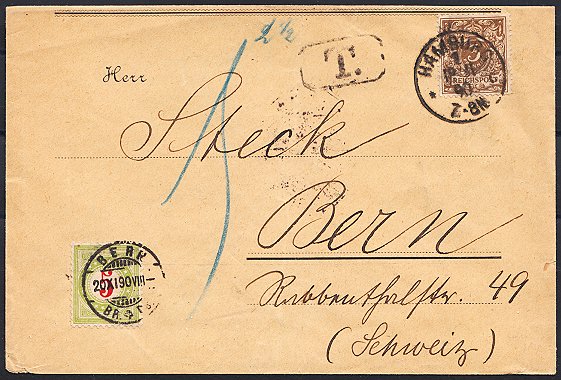 2½
T.
HAMBURG
7-8N
3
REICHSPOST
Herr
Steck
Bern
Rabbenthalstr. 49
(Schweiz)
5
BERN
20XI90VIII